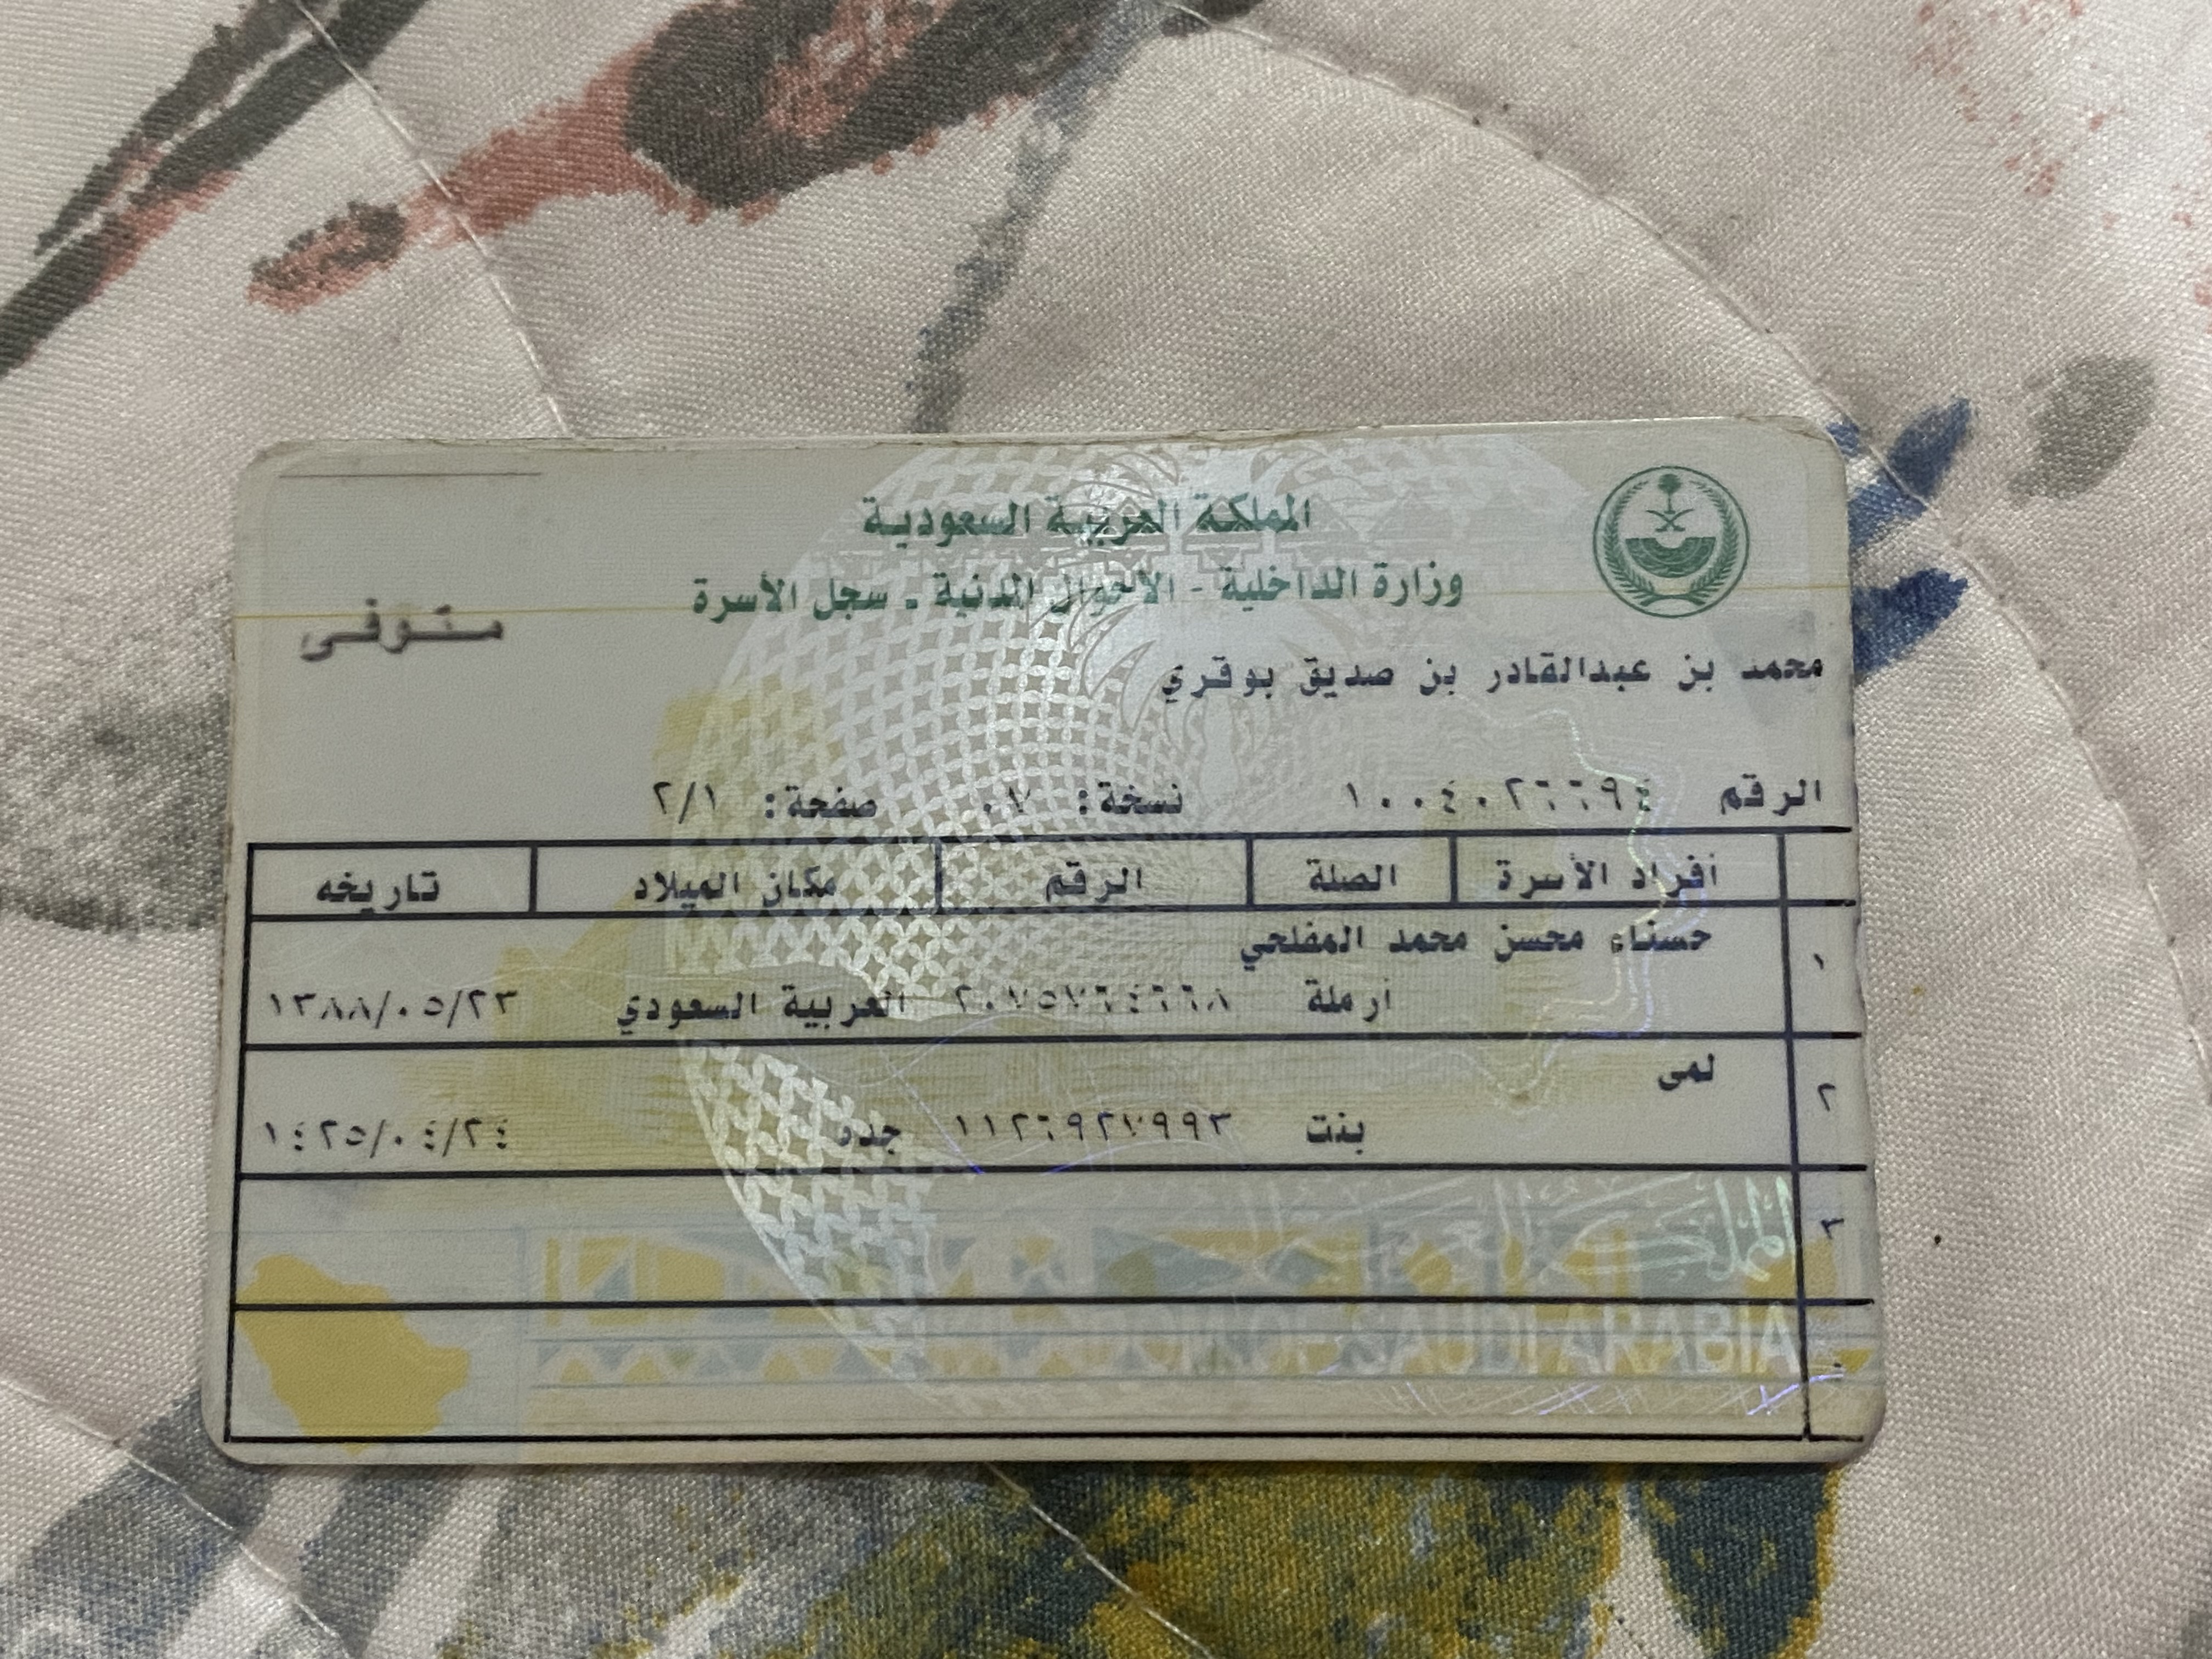 المملكة العربية السعودية
وزارة الداخلية - الأحوال المدنية - سجل الأسرة
متوفى
محمد بن عبدالقادر بن صديق بوقري
الرقم ١٠٠٤٠٢٦٦٩٤ نسخة: ٠٧ صفحة: ٢/١
أفراد الأسرة الصلة الرقم مكان الميلاد تاريخه
١ حسناء محسن محمد المفلحي
أرملة ٢٠٧٥٧٦٤٦٦٨ العربية السعودي ١٣٨٨/٠٥/٢٣
٢ لمى
بنت ١١٢٦٩٢٧٩٩٣ جدة ١٤٢٥/٠٤/٢٤
٣
المملكة العربية
KINGDOM OF SAUDI ARABIA